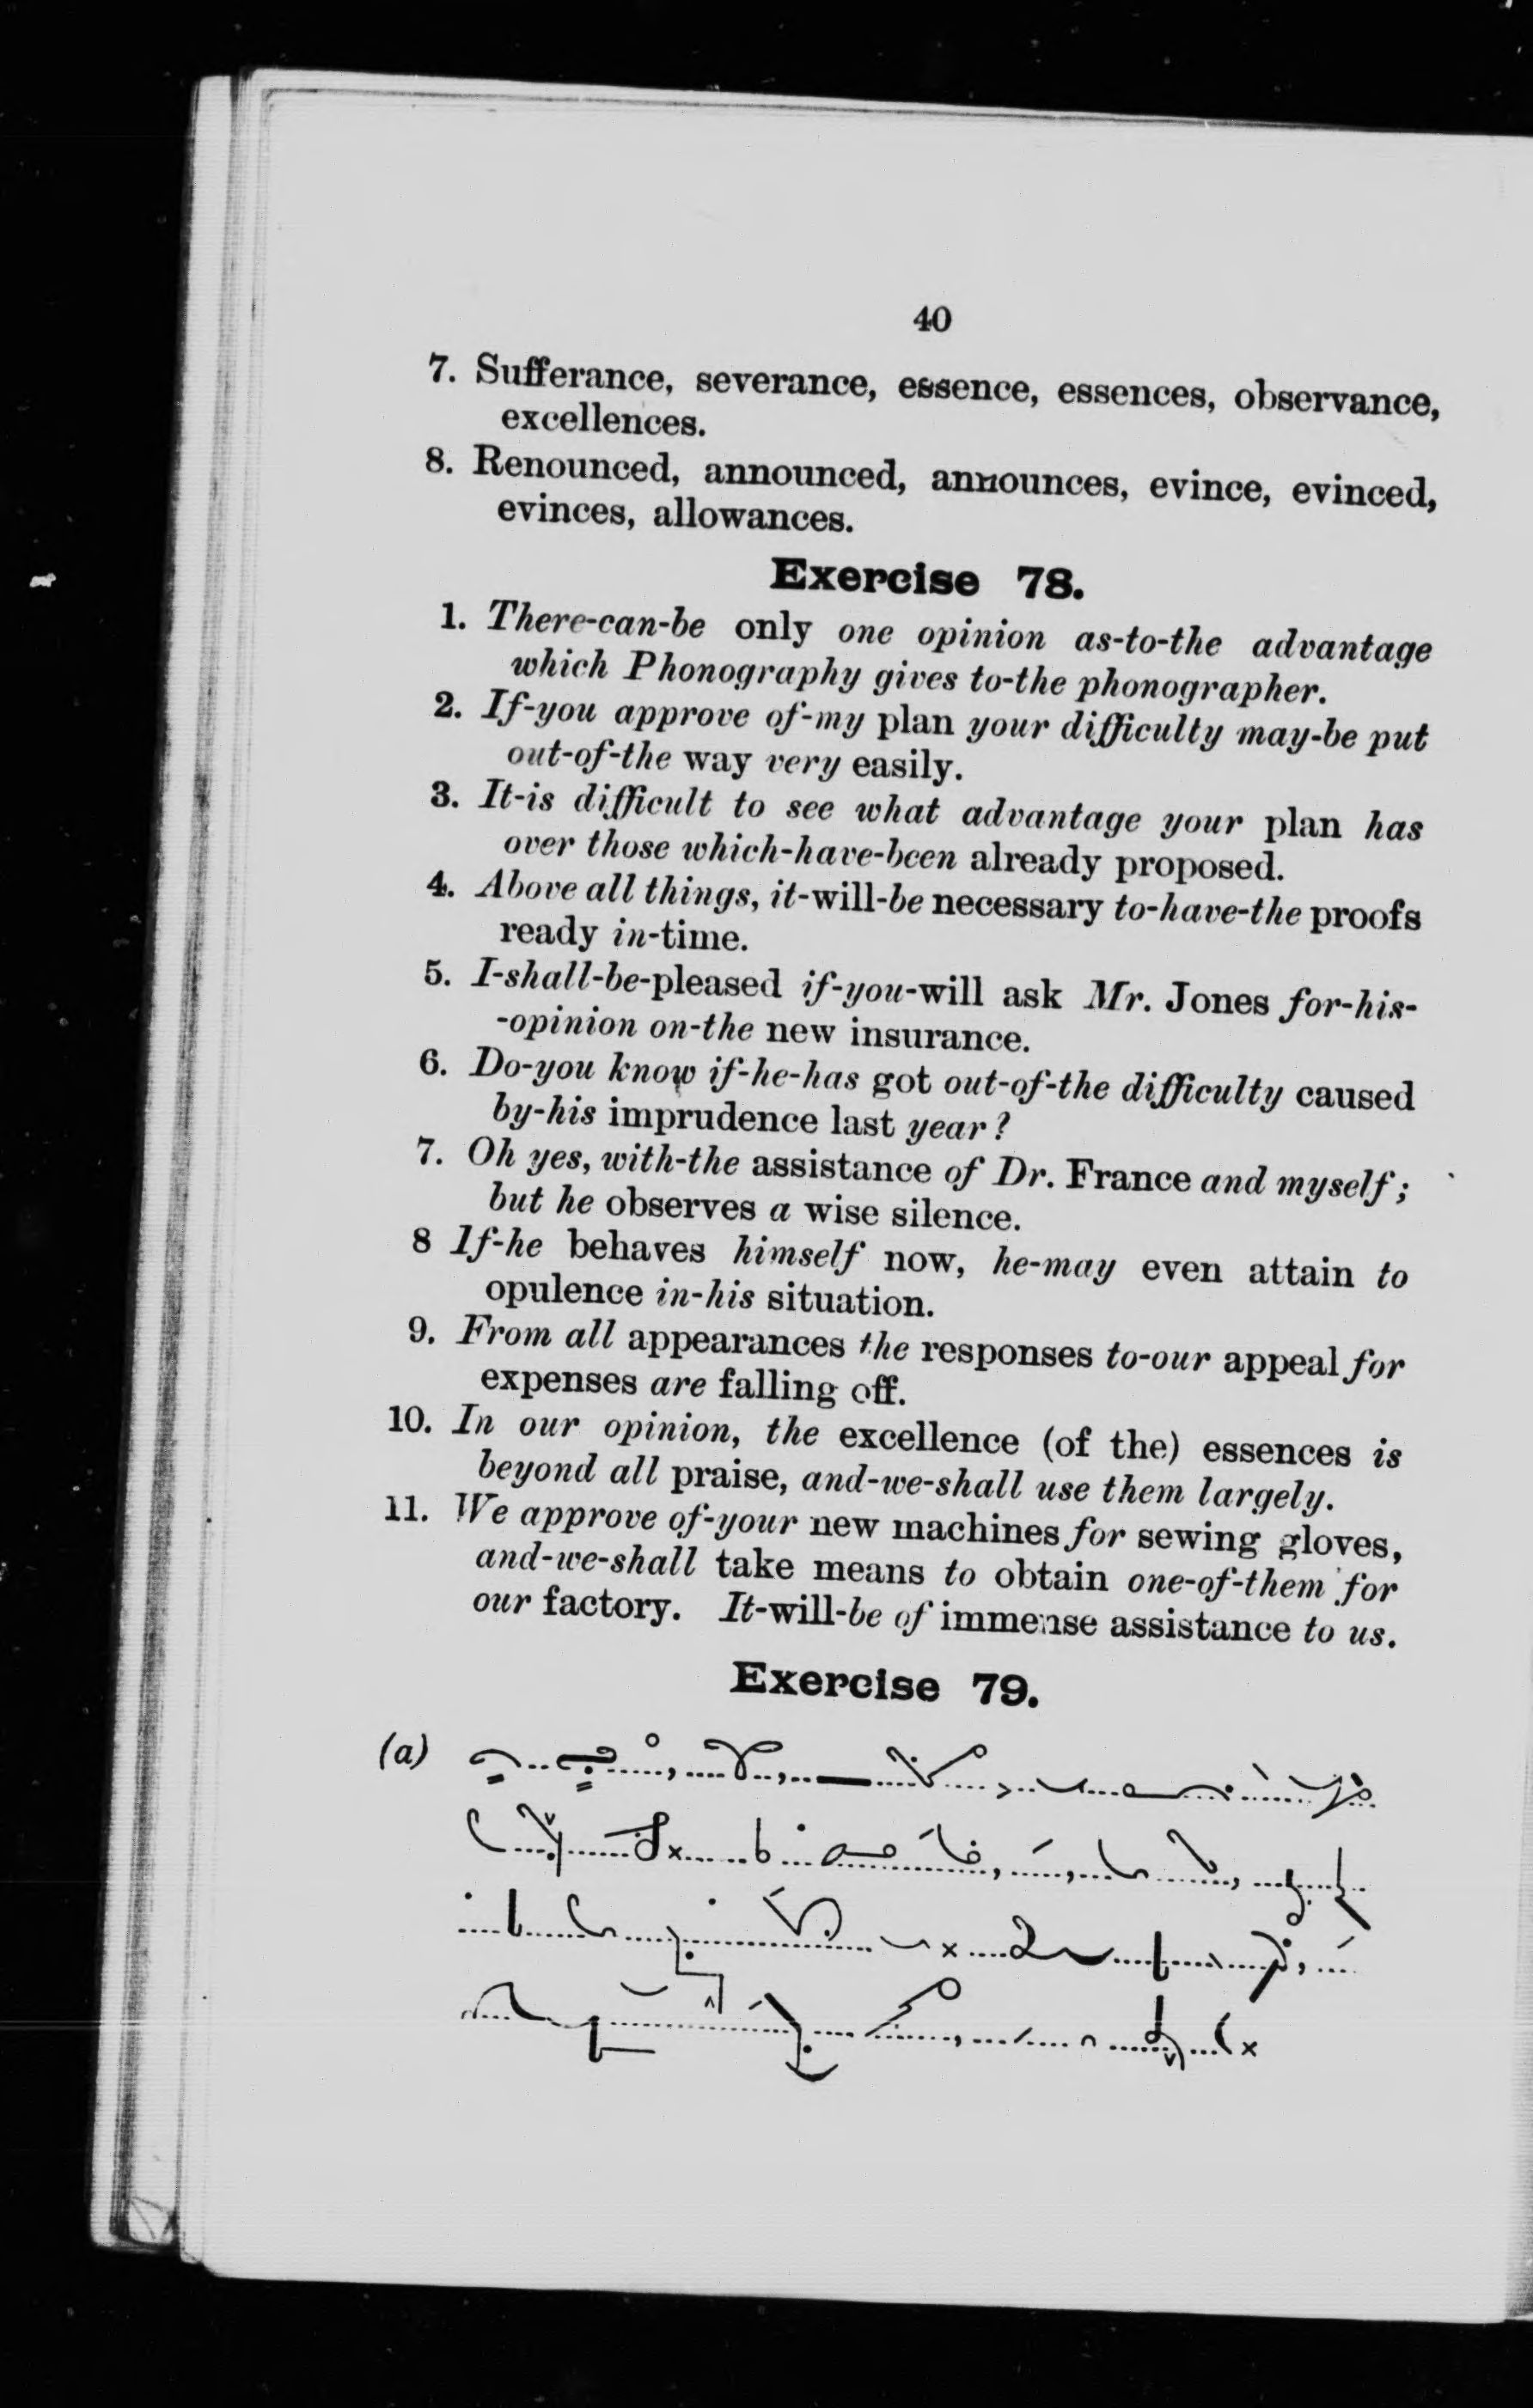 40
7. Sufferance, severance, essence, essences, observance,
excellences.
8. Renounced, announced, announces, evince, evinced,
evinces, allowances.
Exercise 78.
1. There-can-be only one opinion as-to-the advantage
which Phonography gives to-the phonographer.
2. If-you approve of-my plan your difficulty may-be put
out-of-the way very easily.
3. It-is difficult to see what advantage your plan has
over those which-have-been already proposed.
4. Above all things, it-will-be necessary to-have-the proofs
ready in-time.
5. I-shall-be-pleased if-you-will ask Mr. Jones for-his-
-opinion on-the new insurance.
6. Do-you know if-he-has got out-of-the difficulty caused
by-his imprudence last year?
7. Oh yes, with-the assistance of Dr. France and myself;
but he observes a wise silence.
8 If-he behaves himself now, he-may even attain to
opulence in-his situation.
9. From all appearances the responses to-our appeal for
expenses are falling off.
10. In our opinion, the excellence (of the) essences is
beyond all praise, and-we-shall use them largely.
11. We approve of-your new machines for sewing gloves,
and-we-shall take means to obtain one-of-them for
our factory. It-will-be of immense assistance to us.
Exercise 79.
(a)